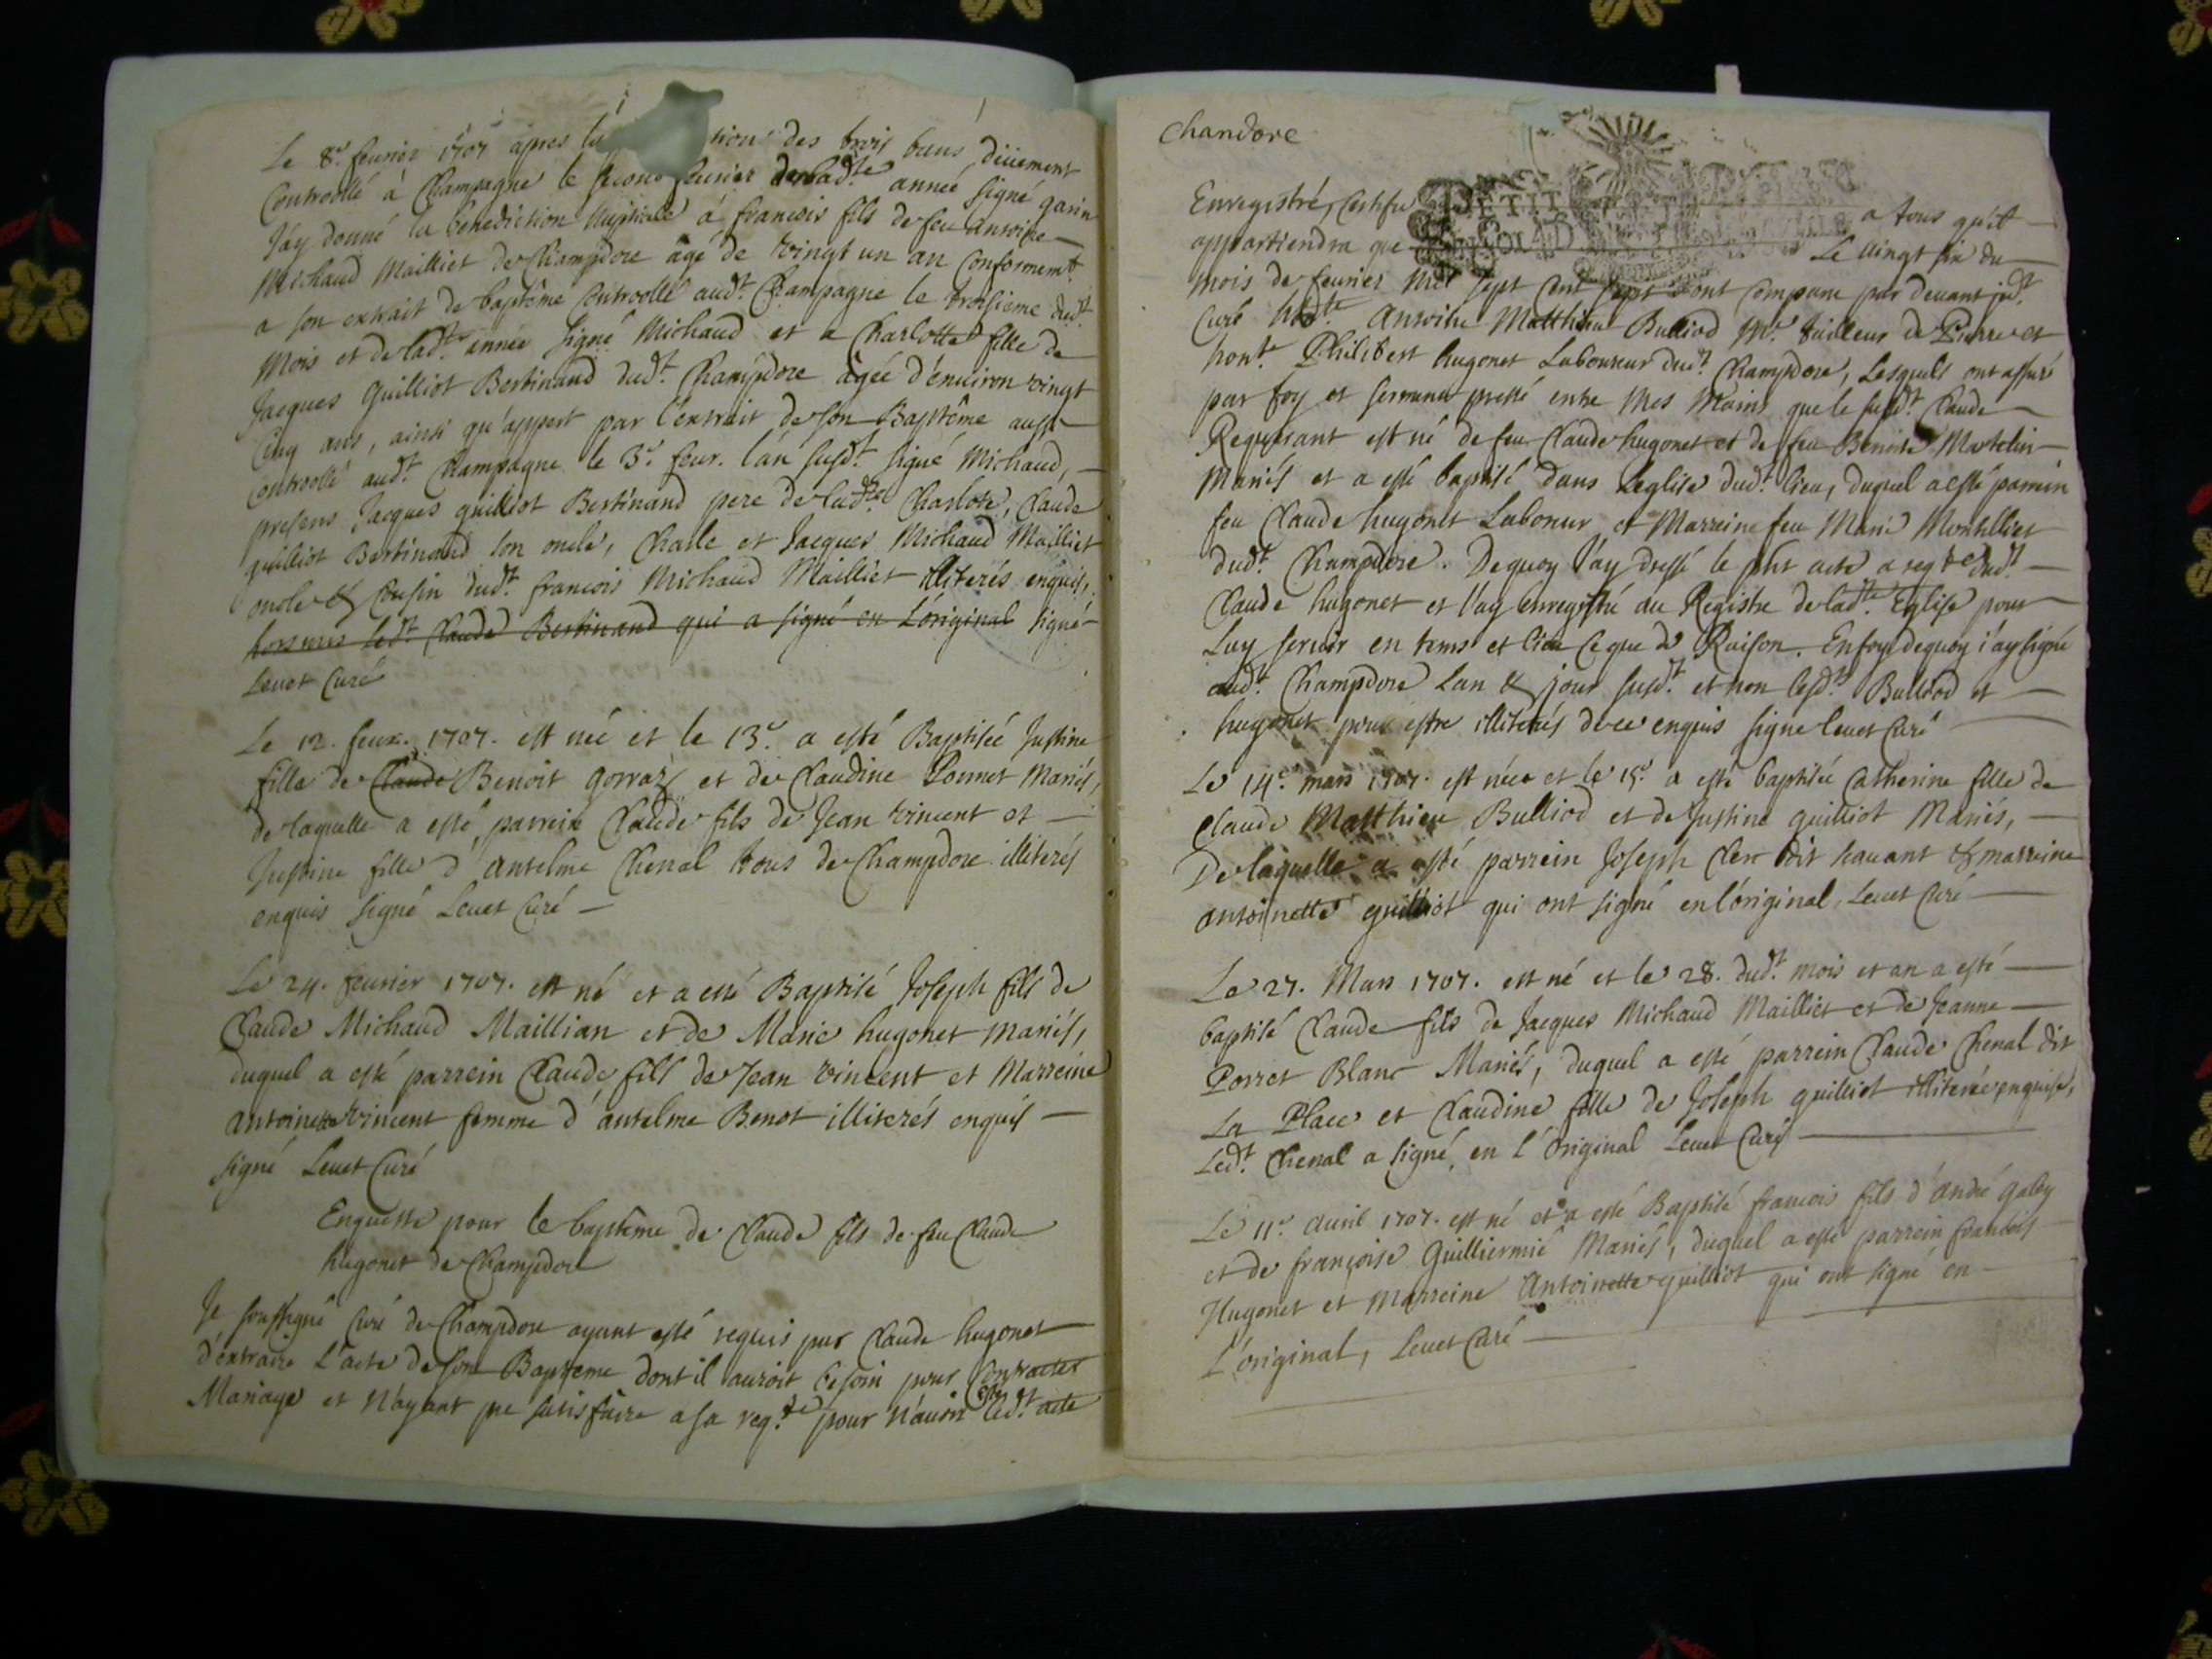 Le 8e. feurier 1707 apres la tion des trois bans düement
Controollé à Champagne le second feurier de ladte. année signé garin
J'ay donné la benediction Nuptiale a francois fils de feu Antoine
Michaud Mailliet de Champdore agé de vingt un an Conformemt.
a son extrait de baptême Controollé audt. Champagne le troisieme dudt.
Mois et de ladt. année signé Michaud et a Charlotte fille de
Jacques Guilliot Bertinand dudt. Champdore agée d'enuiron vingt
Cinq ans, ainsi qu'appert par l'extrait de son Baptême aussi
Controollé audt. Champagne le 3e. feur. l'an susdt. signé Michaud,
presens Jacques guilliot Bertinand pere de ladte. Charlote, Claude
guilliot Bertinand son oncle, Charle et Jacques Michaud Mailliet
oncle & Cousin dudt. francois Michaud Mailliet illiterés enquis,
hormis ledt. Claude Bertinand qui a signé en L'original signé
Leuet Curé
Le 12. feur. 1707. est née et le 13e. a esté Baptisée Justine
fille de Claude Benoit gorraz et de Claudine Ponnet Mariés,
de laquelle a esté parrein Claude fils de Jean vincent et
Justine fille d'antelme Chenal tous de Champdore illiterés
enquis signé Leuet Curé
Le 24. feurier 1707. est né et a esté Baptisé Joseph fils de
Claude Michaud Maillian et de Marie hugonet mariés,
duquel a esté parrein Claude fils de Jean vincent et Marreine
antoinette vincent femme d'antelme Benot illiterés enquis
signé Leuet Curé
Enqueste pour le baptême de Claude fils de feu Claude
hugonet de Champdore
Je soussigné Curé de Champdore ayant esté requis par Claude hugonet
d'extraire L'acte de son Bapteme dont il auroit besoin pour Contracter
Mariage et N'ayant pu satisfaire a sa reqte. pour n'auoir esté ledt. acte
Chandore
Enregistré, Certifie a tous qu'il
PETIT PAPIER
appartiendra que Le Vingt six du
mois de feurier Mil sept Cent sept sont Comparu par deuant jedt.
Curé hont. Antoine Matthieu Bulliod Me. tailleur de Pierre et
hont. Philibert hugonet Laboureur dudt. Champdore, Lesquels ont assuré
par foy et serment presté entre Mes Mains que le susdt. Claude
Requerant est né de feu Claude hugonet et de feu Benoite Martelin
Mariés et a esté baptisé dans l'eglise dudt. lieu, duquel a esté parrein
feu Claude hugonet Laboureur et Marreine feu Marie Montilliet
dudt. Champdore. Dequoy J'ay dressé le psnt acte a reqte dudt.
Claude hugonet et l'ay enregistré au Registre de ladte. Eglise pour
Luy seruir en tems et lieu Ce que de Raison. En foy dequoy i'ay signé
audt. Champdore L'an & jour susdt. et non lesdt. Bulliod et
hugonet pour estre illiterés de ce enquis signe Leuet Curé
Le 14e. mars 1707. est née et le 15e. a esté baptisée Catherine fille de
Claude Matthieu Bulliod et de Justine guilliot Mariés,
De laquelle a esté parrein Joseph Clerc dit sauant & marreine
antoinette guilliot qui ont signé en l'original, Leuet Curé
Le 27. Mars 1707. est né et le 28. dudt. mois et an a esté
baptisé Claude fils de Jacques Michaud Mailliet et de Jeanne
Porret Blanc Mariés, duquel a esté parrein Claude Chenal dit
La Place et Claudine fille de Joseph guilliot illiterée enquise,
Ledt. Chenal a signé en L'Original Leuet Curé
Le 11e. auril 1707. est né et a esté Baptisé francois fils d'André galey
et de françoise Guilliermié Mariés, duquel a esté parrein francois
Hugonet et Marreine Antoinette guilliot qui ont signé en
L'original, Leuet Curé